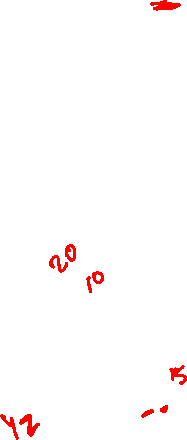 20
10
15
42